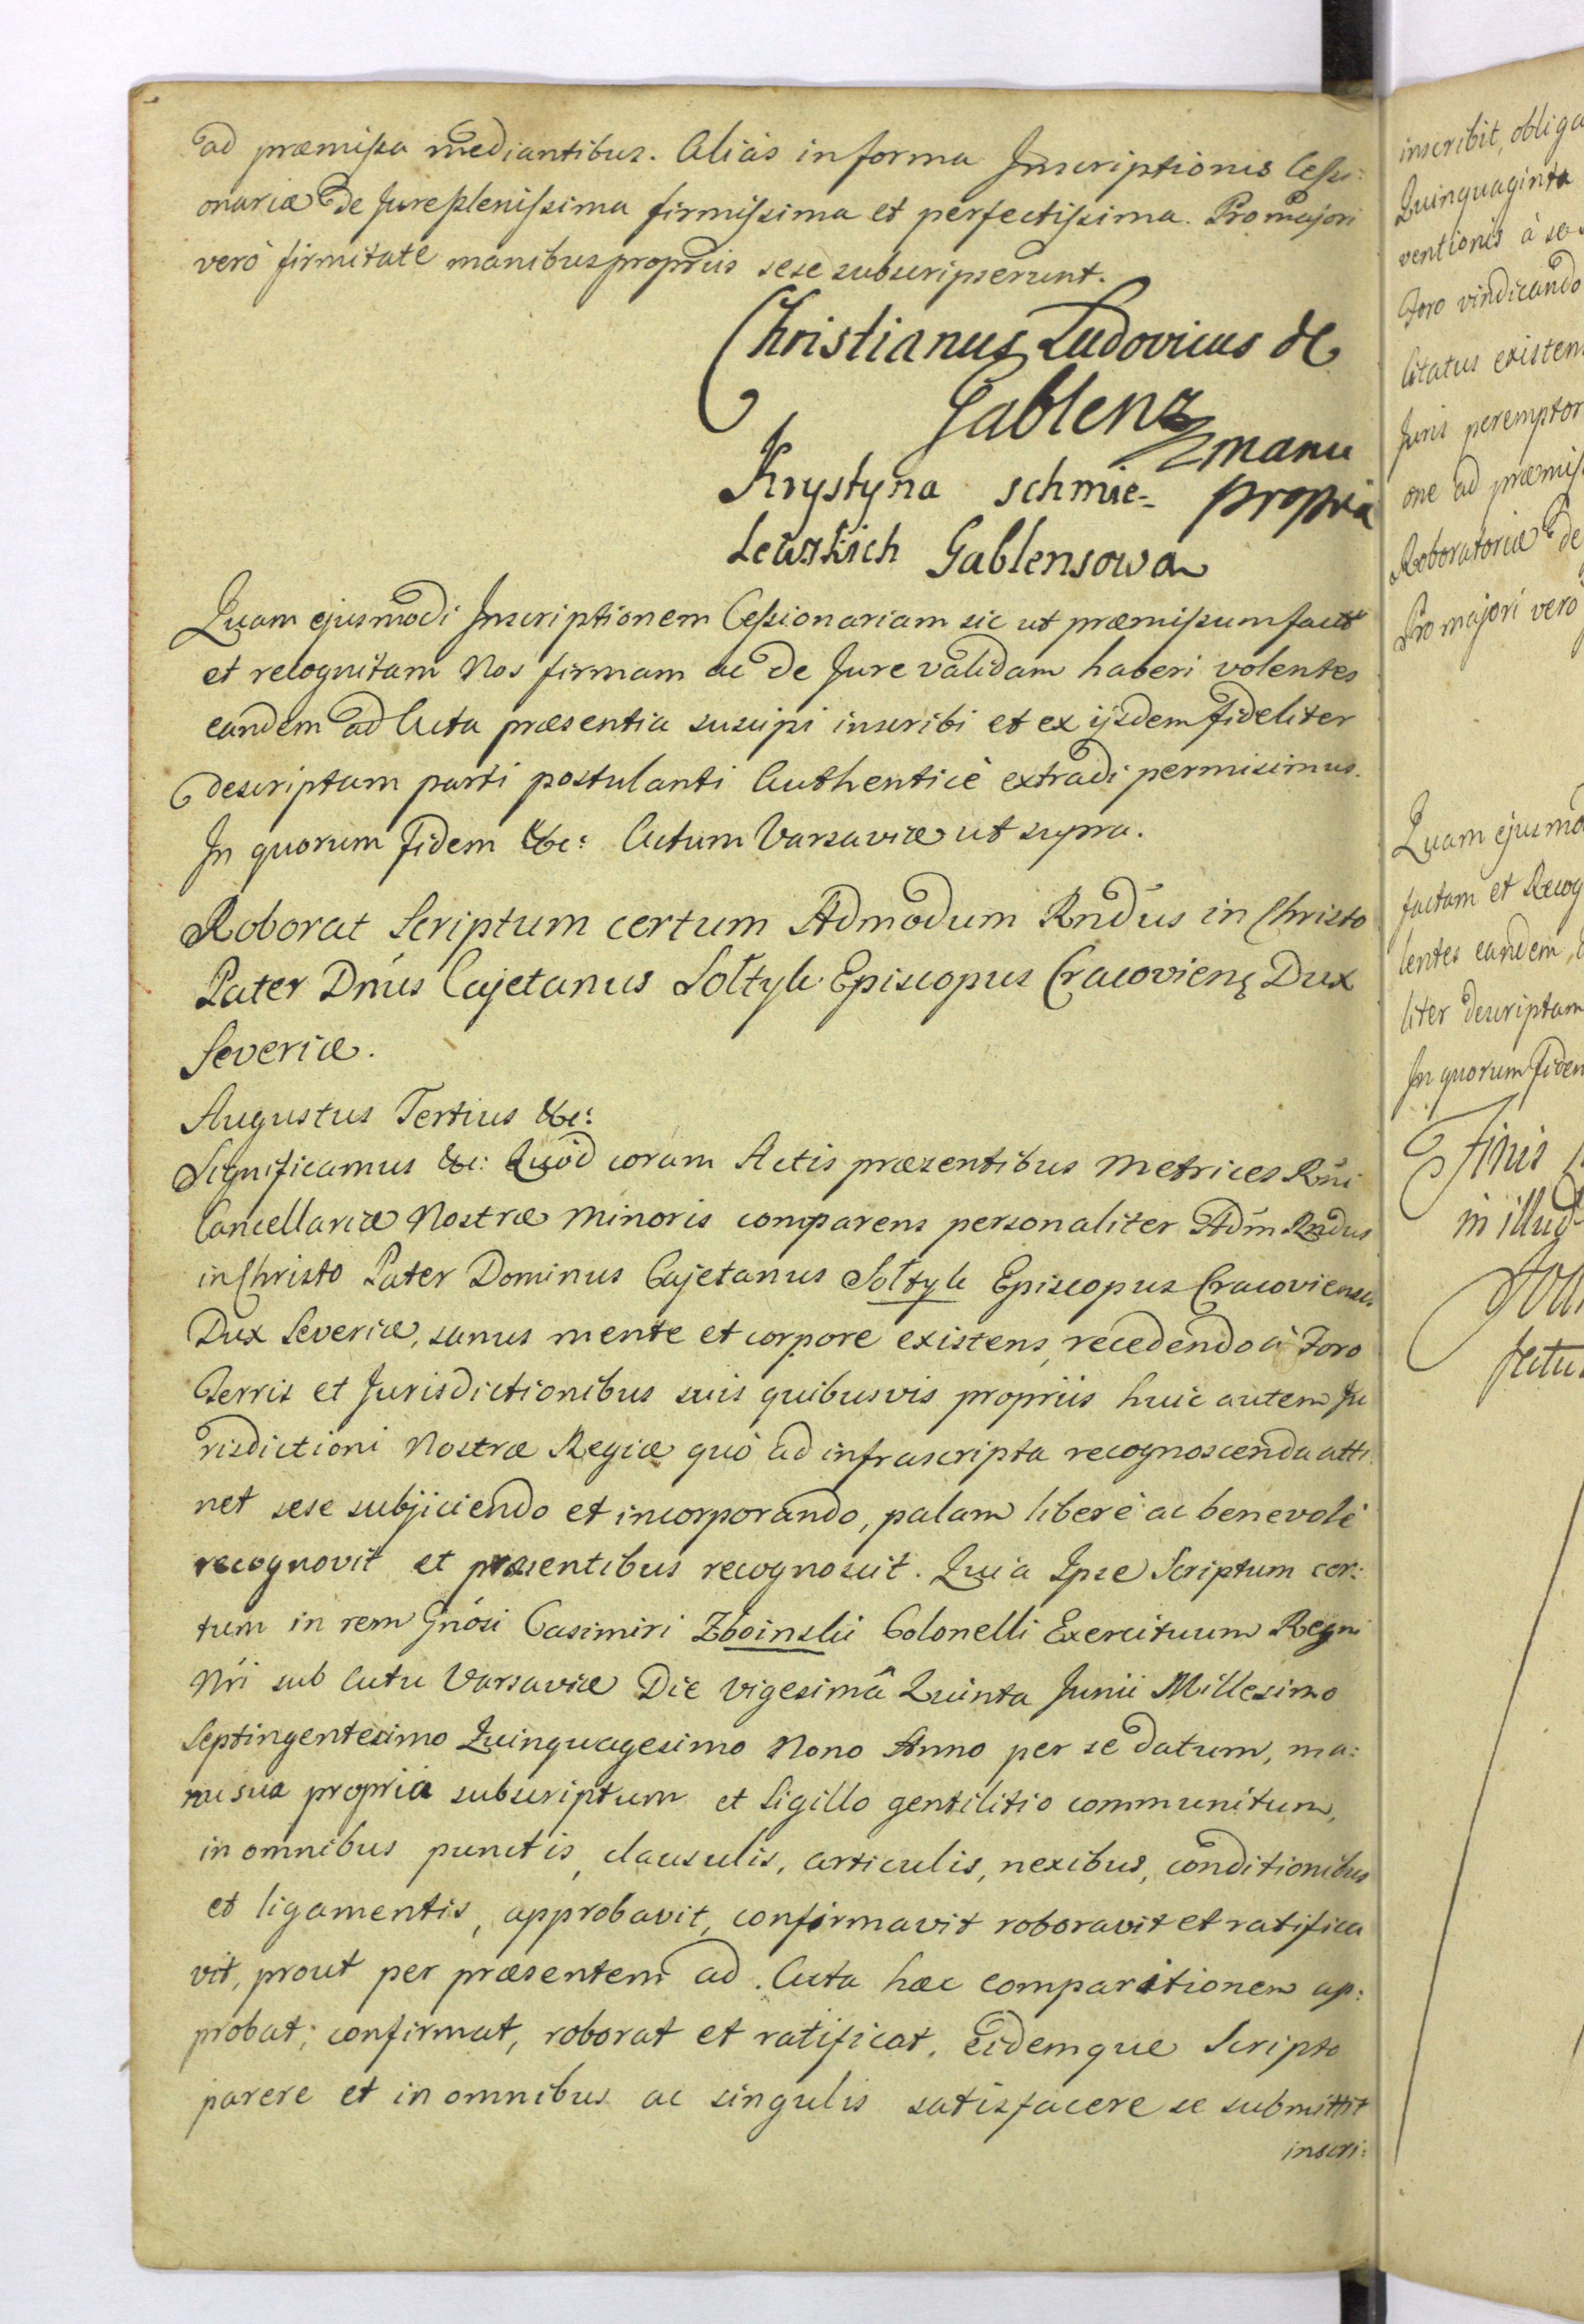 ad præmissa mediantibus. Aliàs in forma Inscriptionis Cessi:
onariæ de Jure plenissima firmissima et perfectissima. Pro majori
verò firmitate manibus propriis sese subscripserunt.
Christianus Ludovicus de
Gablenz
manu
Krystyna schmie- propria
lewskich Gablensowa
Quam ejusmodi Inscriptionem Cessionariam sic ut præmissum fact
et recognitam Nos firmam ac de Jure validam haberi volentes
eandem ad Acta præsentia suscipi inscribi et ex ijsdem fideliter
descriptam parti postulanti Authenticè extradi permisimus.
In quorum fidem &c: Actum Varsaviæ ut supra.
Roborat Scriptum certum Admodum Rndus in Christo
Pater Dnus Cajetanus Sołtyk Episcopus Cracovienς Dux
Severiæ.
Augustus Tertius &c:
Significamus &c: Quòd coram Actis præzentibus Metrices Rni
Cancellariæ Nostræ Minoris comparens personaliter Adm Rndus
in Christo Pater Dominus Cajetanus Sołtyk Episcopus Cracoviensis
Dux Severiæ, sanus mente et corpore existens, recedendo à Foro
Terris et Jurisdictionibus suis quibusvis propriis huic autem Ju
risdictioni Nostræ Regiæ quò ad infrascripta recognoscenda atti
net sese subjiciendo et incorporando, palam liberè ac benevolè
recognovit et præsentibus recognoscit. Quia Ipse Scriptum cer:
tum in rem Gnosi Casimiri Zboinskii Colonelli Exercituum Regni
Nri sub Actu Varsaviæ Die vigesimâ Quinta Junii Millesimo
Septingentesimo Quinquagesimo Nono Anno per se datum, ma:
nu sua propria subscriptum et Sigillo gentilitio communitum,
in omnibus punctis, clausulis, articulis, nexibus, conditionibus
et ligamentis, approbavit, confirmavit roboravit et ratifica
vit, prout per præsentem ad Acta hæc comparitionem ap:
probat; confirmat, roborat et ratificat, eidemque Scripto
parere et in omnibus ac singulis satisfacere se submittit
inscri:
inscribit, obliga
Quinquaginta
ventionis à se
Foro vindicando
Citatus existens
Juris peremptor
one ad præmiss
Roboratoriæ de
Pro majori vero
Quam ejusmo
factam et Recog
lentes eandem,
liter descriptam
In quorum fidem
Finis
in illud